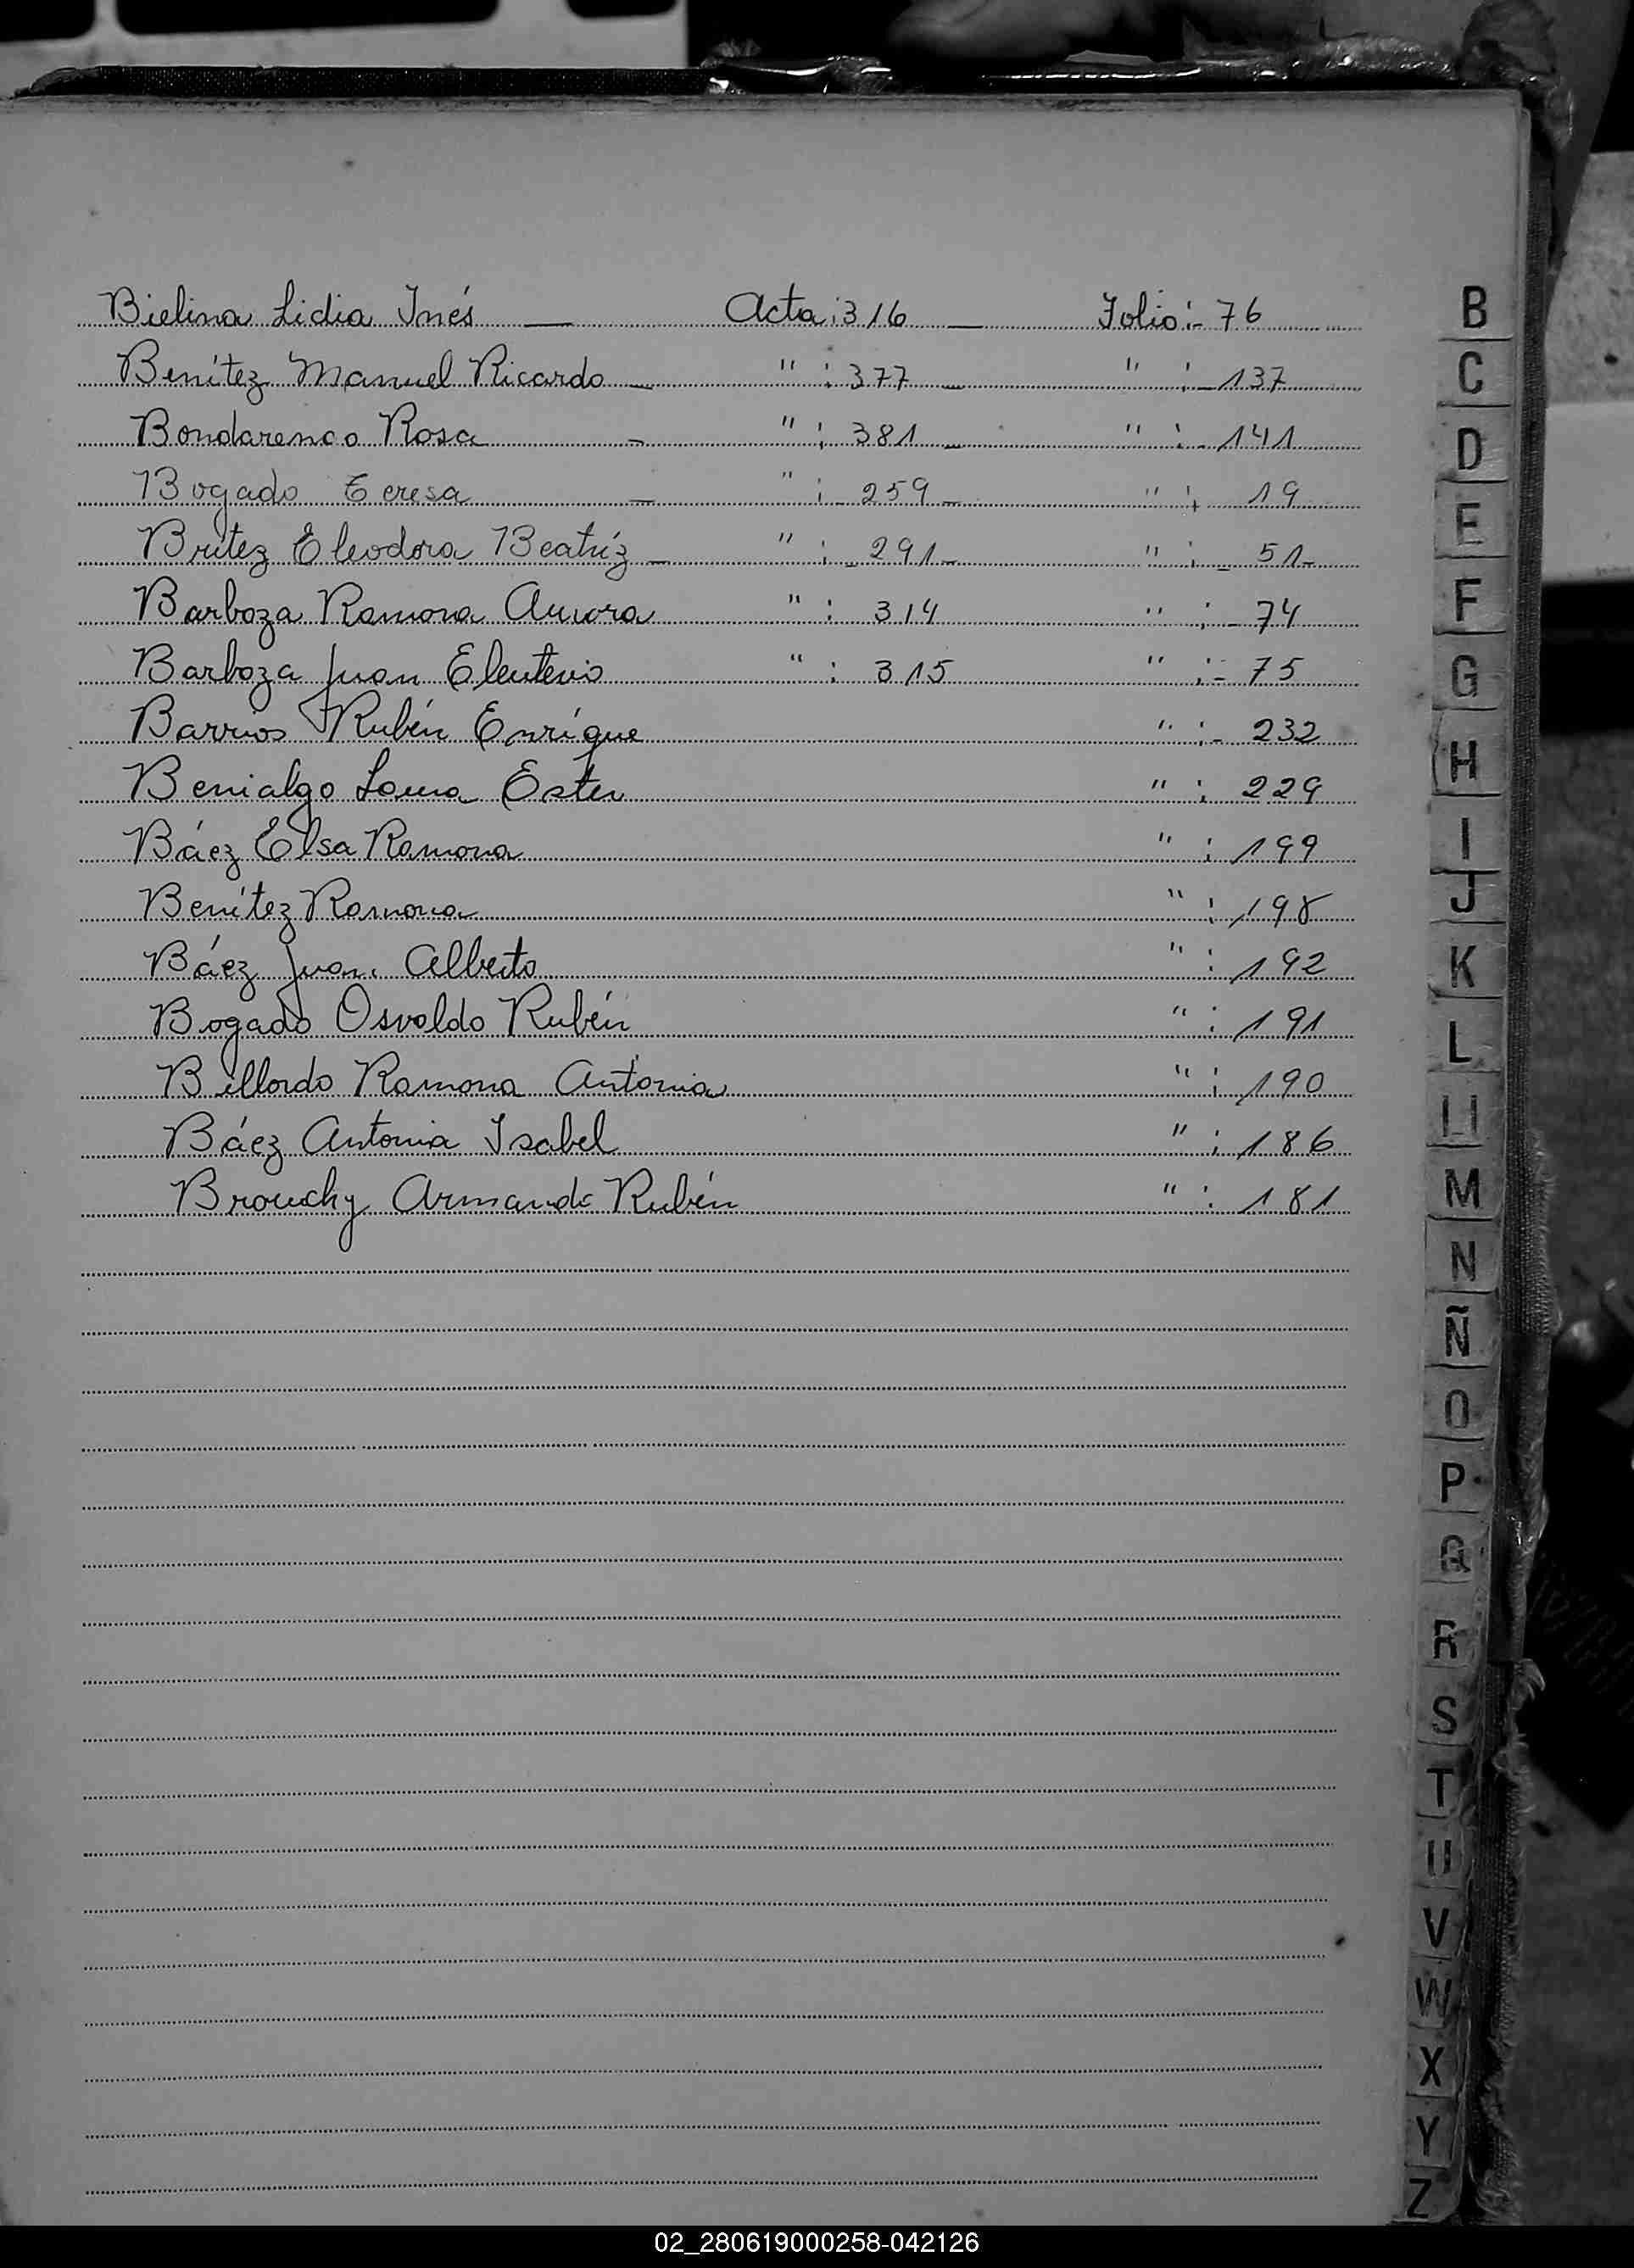 Bielina Lidia Inés — Acta: 316 — Folio:- 76
Benítez Manuel Ricardo — " : 377 — " :- 137
Bondarenco Rosa - " : 381 — " :- 141
Bogado Teresa — " : 259 — " : 19
Brítez Eleodora Beatríz — " : 291 - " : 51-
Barboza Ramona Aurora " : 314 " :- 74
Barboza Juan Eleuterio " : 315 " :- 75
Barrios Rubén Enríque " :- 232
Benialgo Laura Ester " : 229
Báez Elsa Ramona " : 199
Benítez Ramona " : 198
Báez Juan Alberto " : 192
Bogado Osvaldo Rubén " : 191
Billordo Ramona Antonia " : 190
Báez Antonia Isabel " : 186
Brouchy Armando Rubén " : 181
B
C
D
E
F
G
H
I
J
K
L
LL
M
N
Ñ
O
P
Q
R
S
T
U
V
W
X
Y
Z
02_280619000258-042126